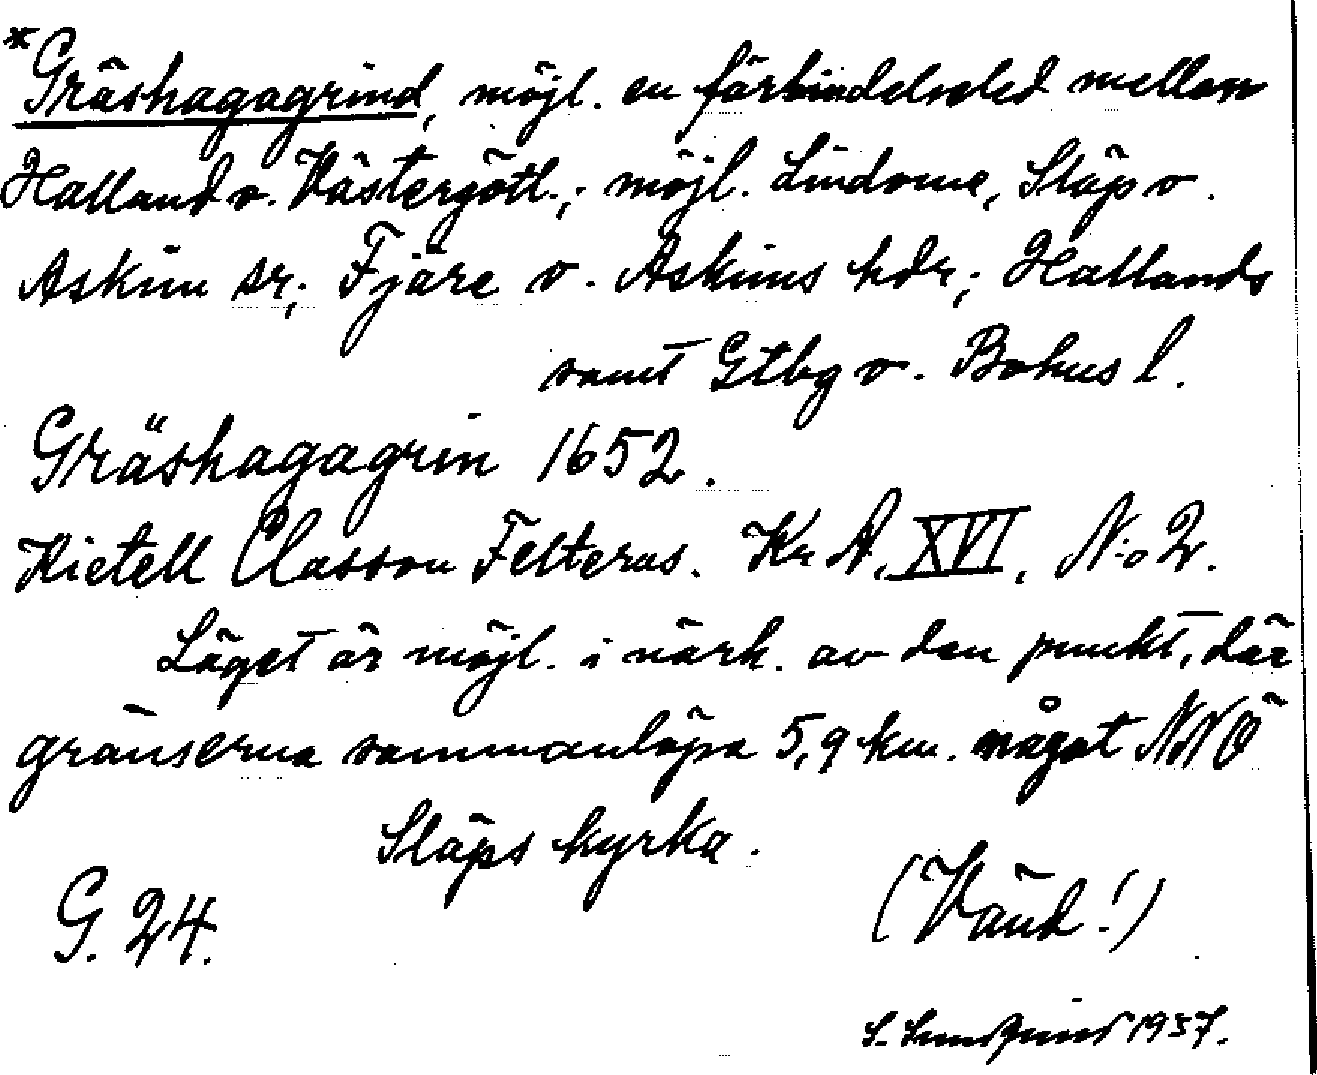 *Gräshagagrind, möjl. en förbindelseled mellan
Halland o. Västergötl.; möjl. Lindome, Släp o.
Askim sr; Fjäre o. Askims hdr; Hallands
samt Gtbg o. Bohus l.
Gräshagagrin 1652.
Kietell Classon Felterus. Kr A, XVI, N:o 2.
Läget är möjl. i närh. av den punkt, där
gränserna sammanlöpa 5,9 km. något NNÖ
Släps kyrka.
G. 24.
(Vänd!)
S. 1937.